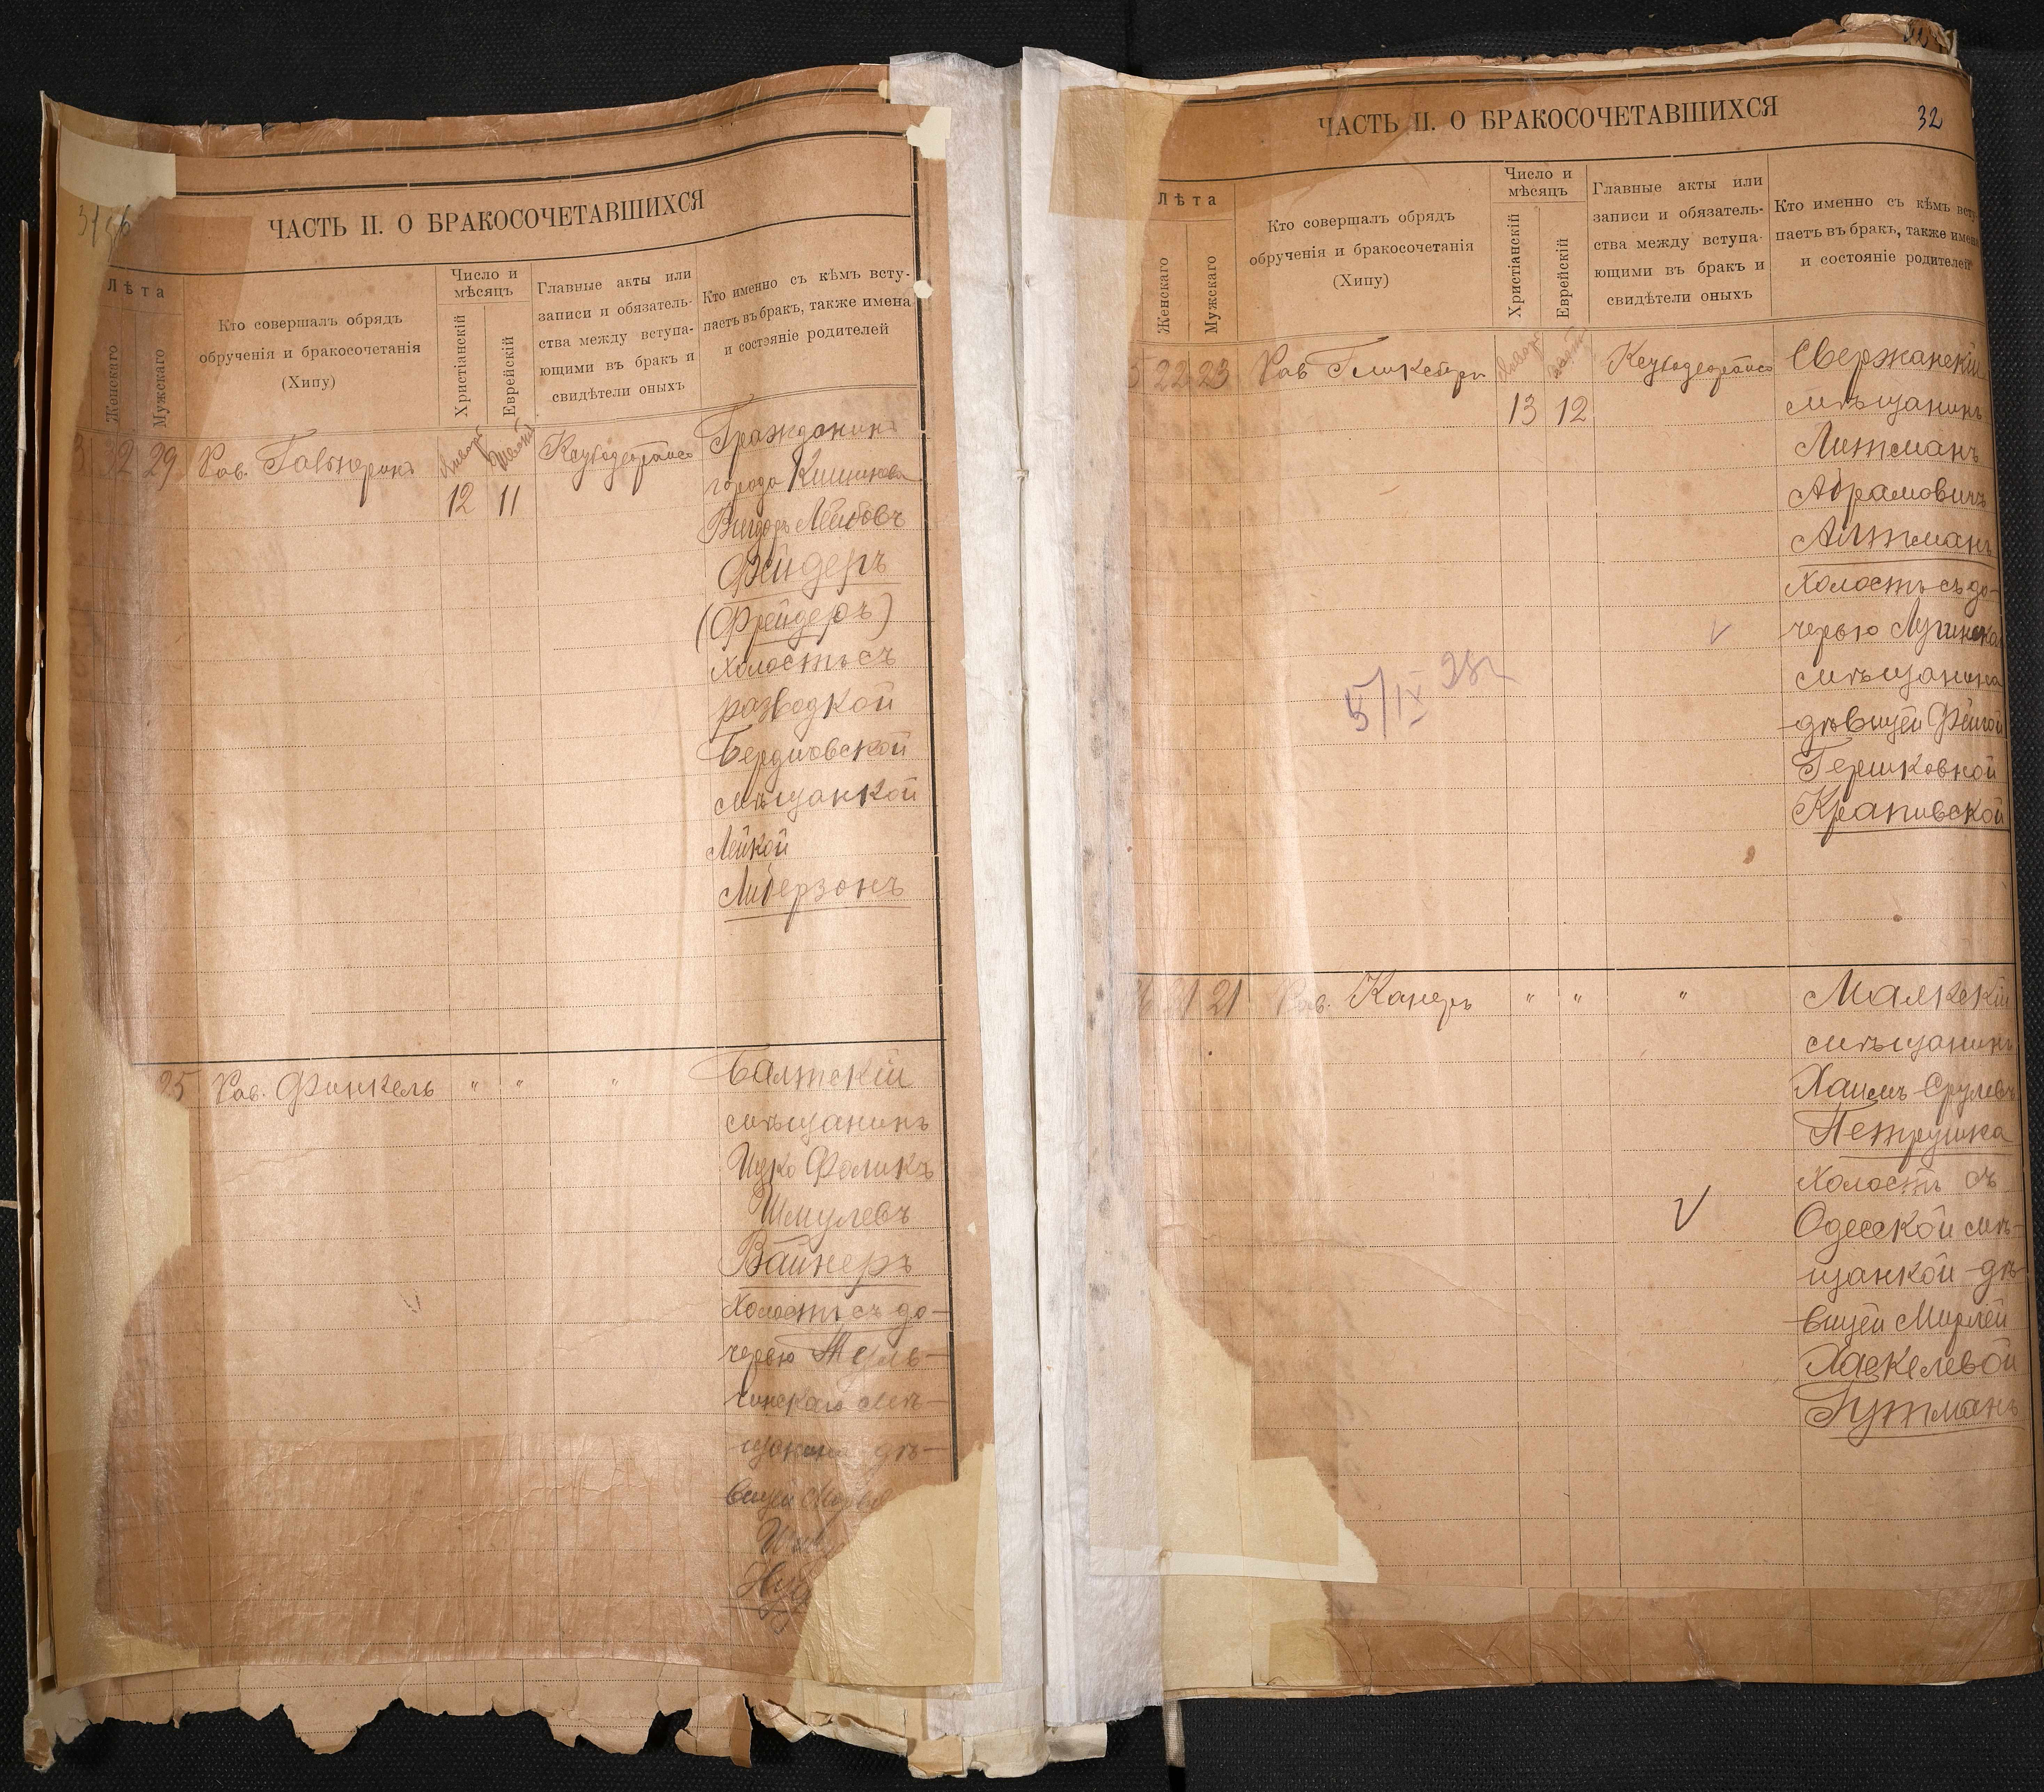 ЧАСТЬ II. О БРАКОСОЧЕТАВШИХСЯ
Лѣта
Женскаго
Мужскаго
Кто совершалъ обрядъ
обрученія и бракосочетанія
(Хипу)
Число и
мѣсяцъ
Христіанскій
Еврейскій
Главные акты или
записи и обязатель-
ства между вступа-
ющими въ бракъ и
свидѣтели оныхъ
Кто именно съ кѣмъ всту-
паетъ въ бракъ, также имена
и состояніе родителей
29 Рав.
12 11
Гражданинъ
города Кишинева
Вигдоръ Лейбовъ
Фейдеръ
(Фрейдеръ)
холостъ съ
разводкой
мѣщанкой
Лейкой
Либерзонъ
25 Рав. Финкель " " "
Балтскій
мѣщанинъ
Ицко Фоликъ
Шмулевъ
Вайнеръ
Холостъ съ до-
черью Туль-
чинскаго мѣ-
щанина дѣ-
вицей
ЧАСТЬ II. О БРАКОСОЧЕТАВШИХСЯ
32
Лѣта
Женскаго
Мужскаго
Кто совершалъ обрядъ
обрученія и бракосочетанія
(Хипу)
Число и
мѣсяцъ
Христіанскій
Еврейскій
Главные акты или
записи и обязатель-
ства между вступа-
ющими въ бракъ и
свидѣтели оныхъ
Кто именно съ кѣмъ всту-
паетъ въ бракъ, также имена
и состояніе родителей
5 22 23 Рав
13 12
мѣщанинъ
Литманъ
Абрамовичъ
Алтманъ
Холостъ съ до-
черью
мѣщанина
дѣвицей Фейгой
Гершковной
Крапивской
5/IX 28г
21 21 Рав. Канеръ " " "
мѣщанинъ
Хаимъ Срулевъ
Петрушка
Холостъ съ
Одесской мѣ-
щанкой дѣ-
вицей Мирлей
Хаскелевой
Гутманъ